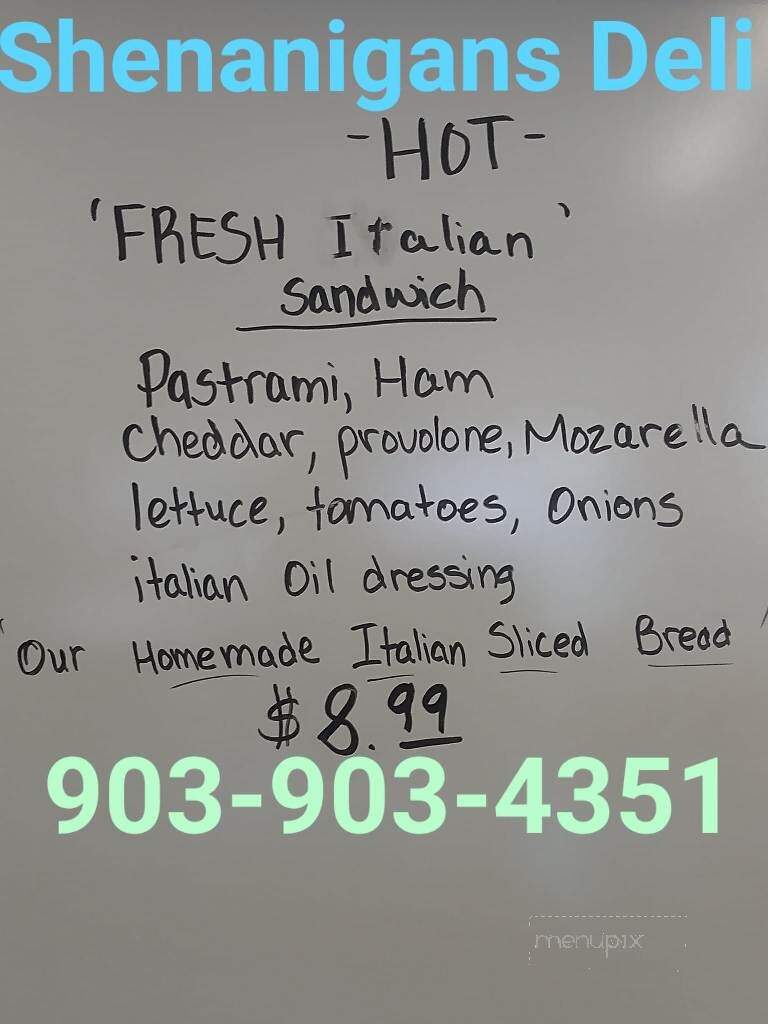 Shenanigans Deli
-HOT-
'FRESH Italian'
Sandwich
Pastrami, Ham
Cheddar, provolone, Mozarella
lettuce, tomatoes, Onions
italian Oil dressing
"Our Homemade Italian Sliced Bread"
$8.99
903-903-4351
menupix